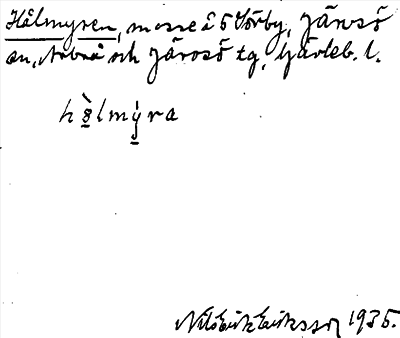 Hålmyren, mosse å 5 Sörby, Järvsö
sn, Arbrå och Järvsö tg, Gävleb. l.
ho̱̊̀lmý̱ra
Nils Erik Eriksson 1935.